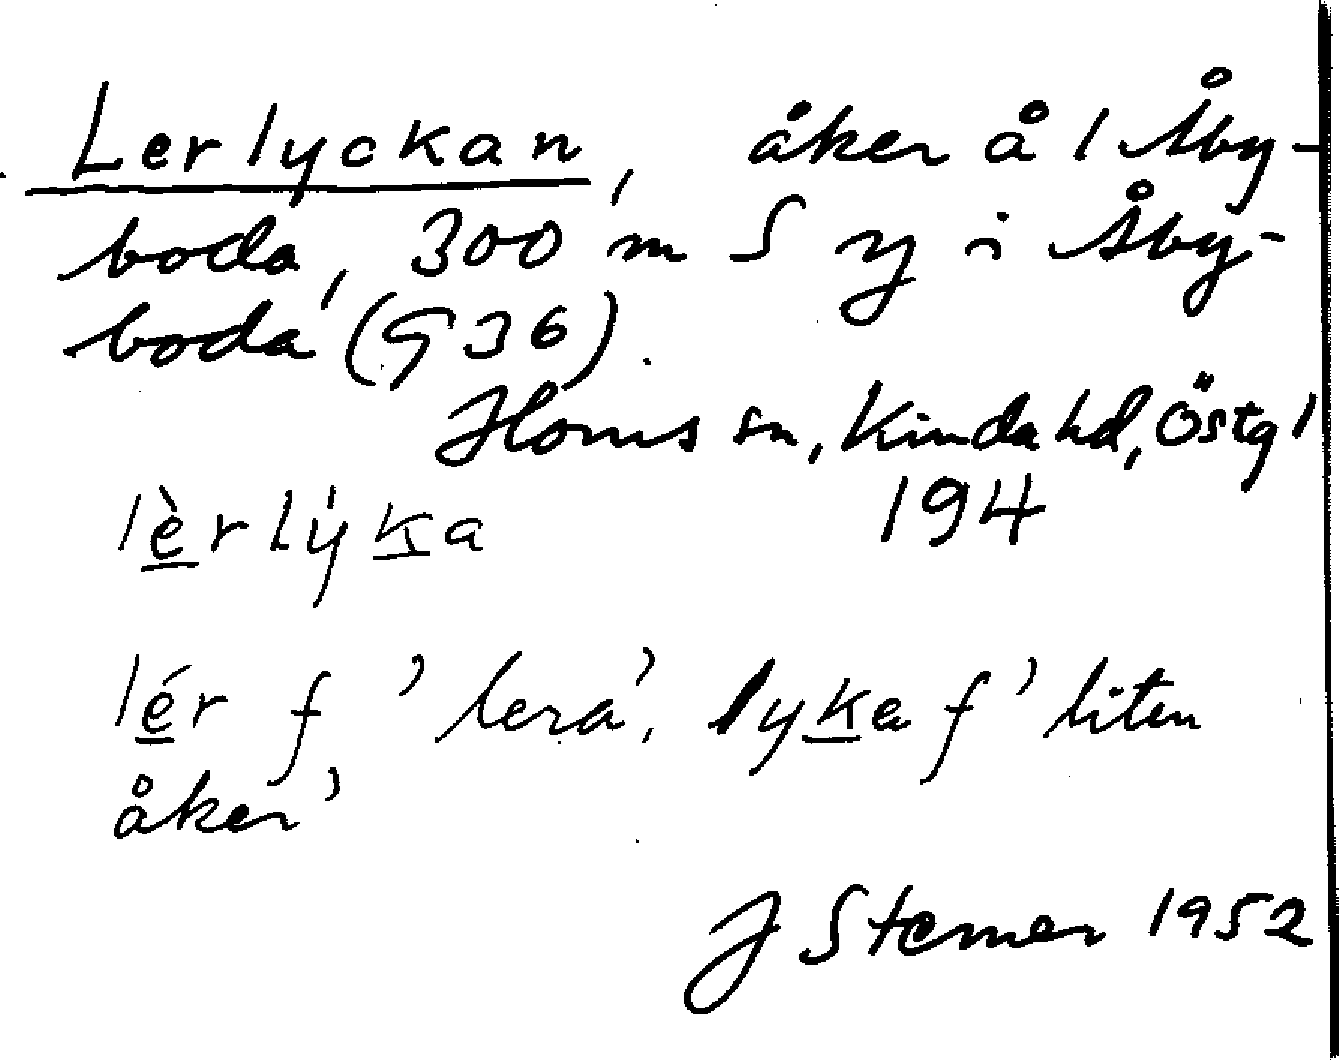 Lerlyckan, åker å 1 Åby-
boda, 300 m S y i Åby-
boda (G36).
Horns sn, Kinda hd, Östgl
194
lèrlýka
lér f 'lera', lyka f 'liten
åker'
J Stemer 1952